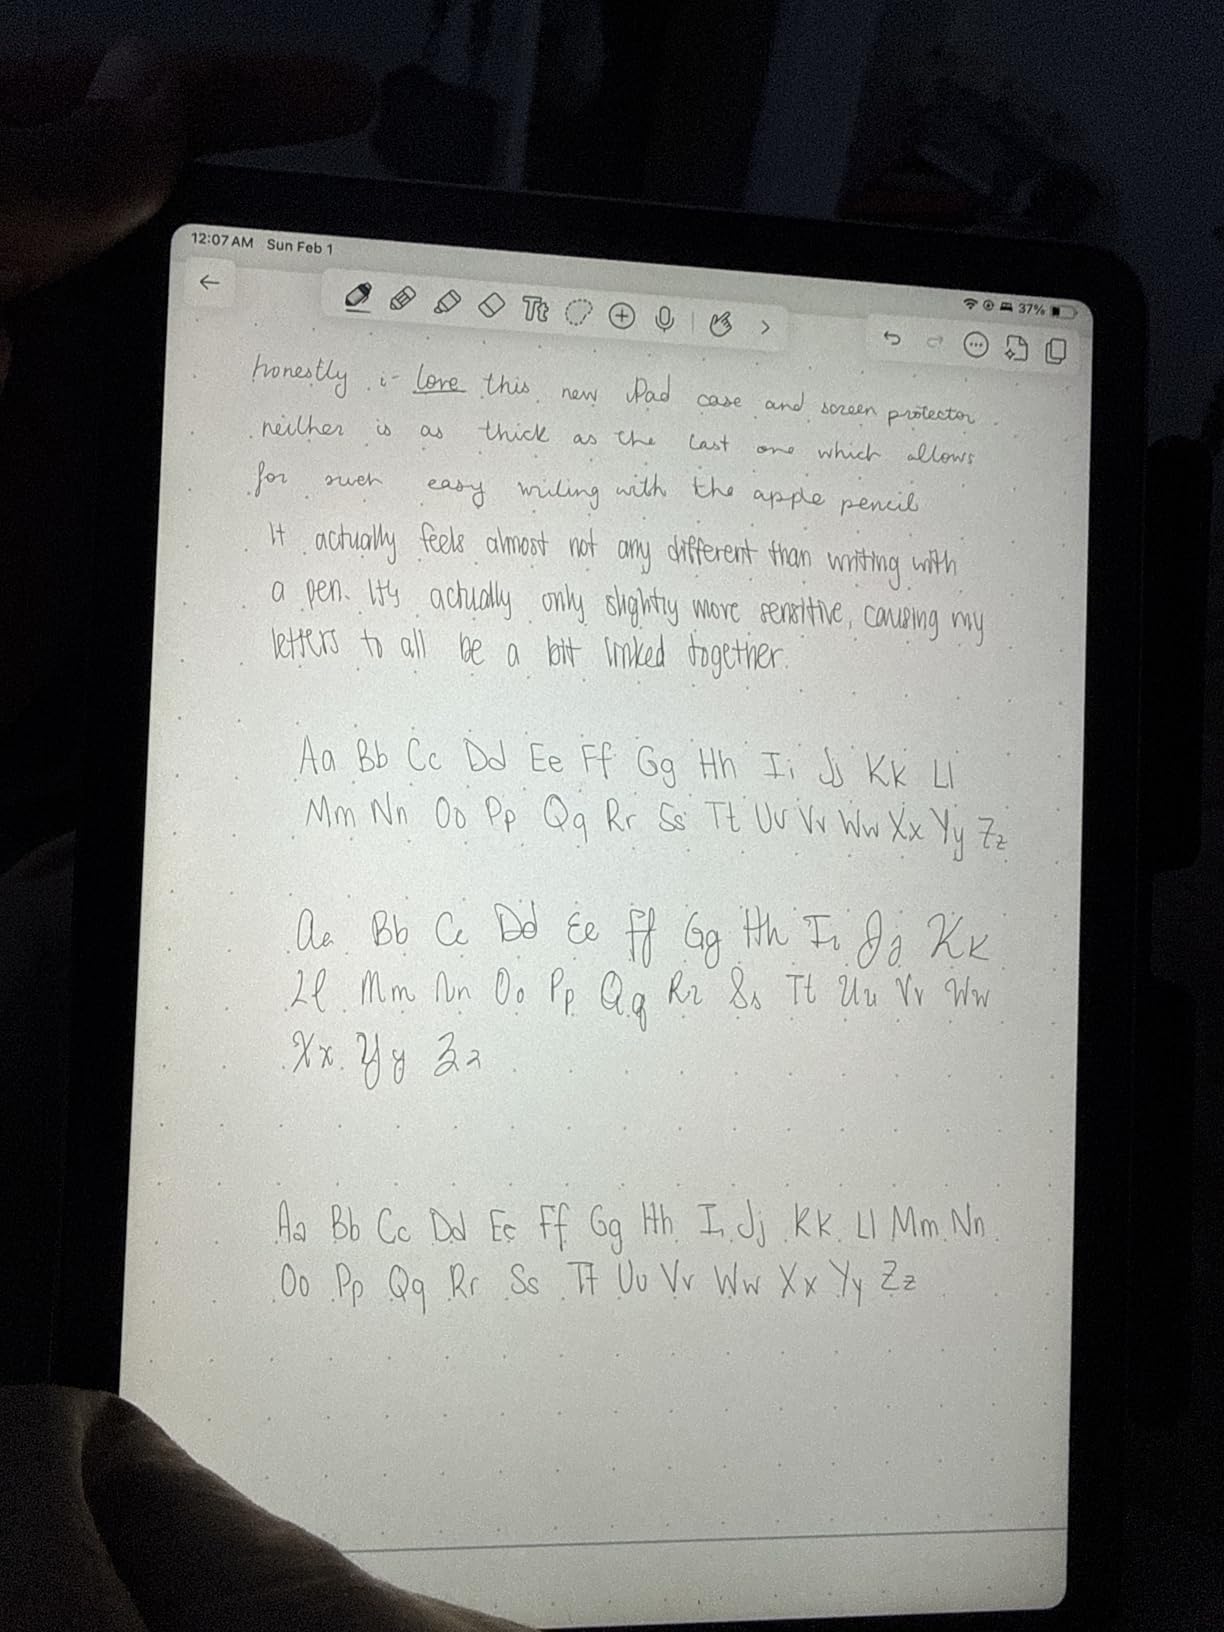 12:07 AM Sun Feb 1
37%
Tt
honestly i love this new iPad case and screen protector.
neither is as thick as the last one which allows
for such easy writing with the apple pencil
It actually feels almost not any different than writing with
a pen. It's actually only slightly more sensitive, causing my
letters to all be a bit linked together.
Aa Bb Cc Dd Ee Ff Gg Hh Ii Jj Kk Ll
Mm Nn Oo Pp Qq Rr Ss Tt Uu Vv Ww Xx Yy Zz
Aa Bb Cc Dd Ee Ff Gg Hh Ii Jj Kk
Ll Mm Nn Oo Pp Qq Rr Ss Tt Uu Vv Ww
Xx Yy Zz
Aa Bb Cc Dd Ee Ff Gg Hh Ii Jj Kk Ll Mm Nn
Oo Pp Qq Rr Ss Tt Uu Vv Ww Xx Yy Zz